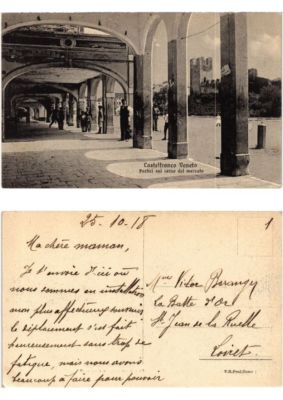 Castelfranco Veneto
Portici sul corso del mercato
25-10-18
1
Ma chère maman,
Je t'envoie d'ici où
nous sommes en installation
mon plus affectueux
le déplacement s'est fait
heureusement sans trop de
fatigue, mais nous avons
beaucoup à faire pour pouvoir
Mme Victor Béranger
La Batte d'Or
St Jean de la Ruelle
Loiret